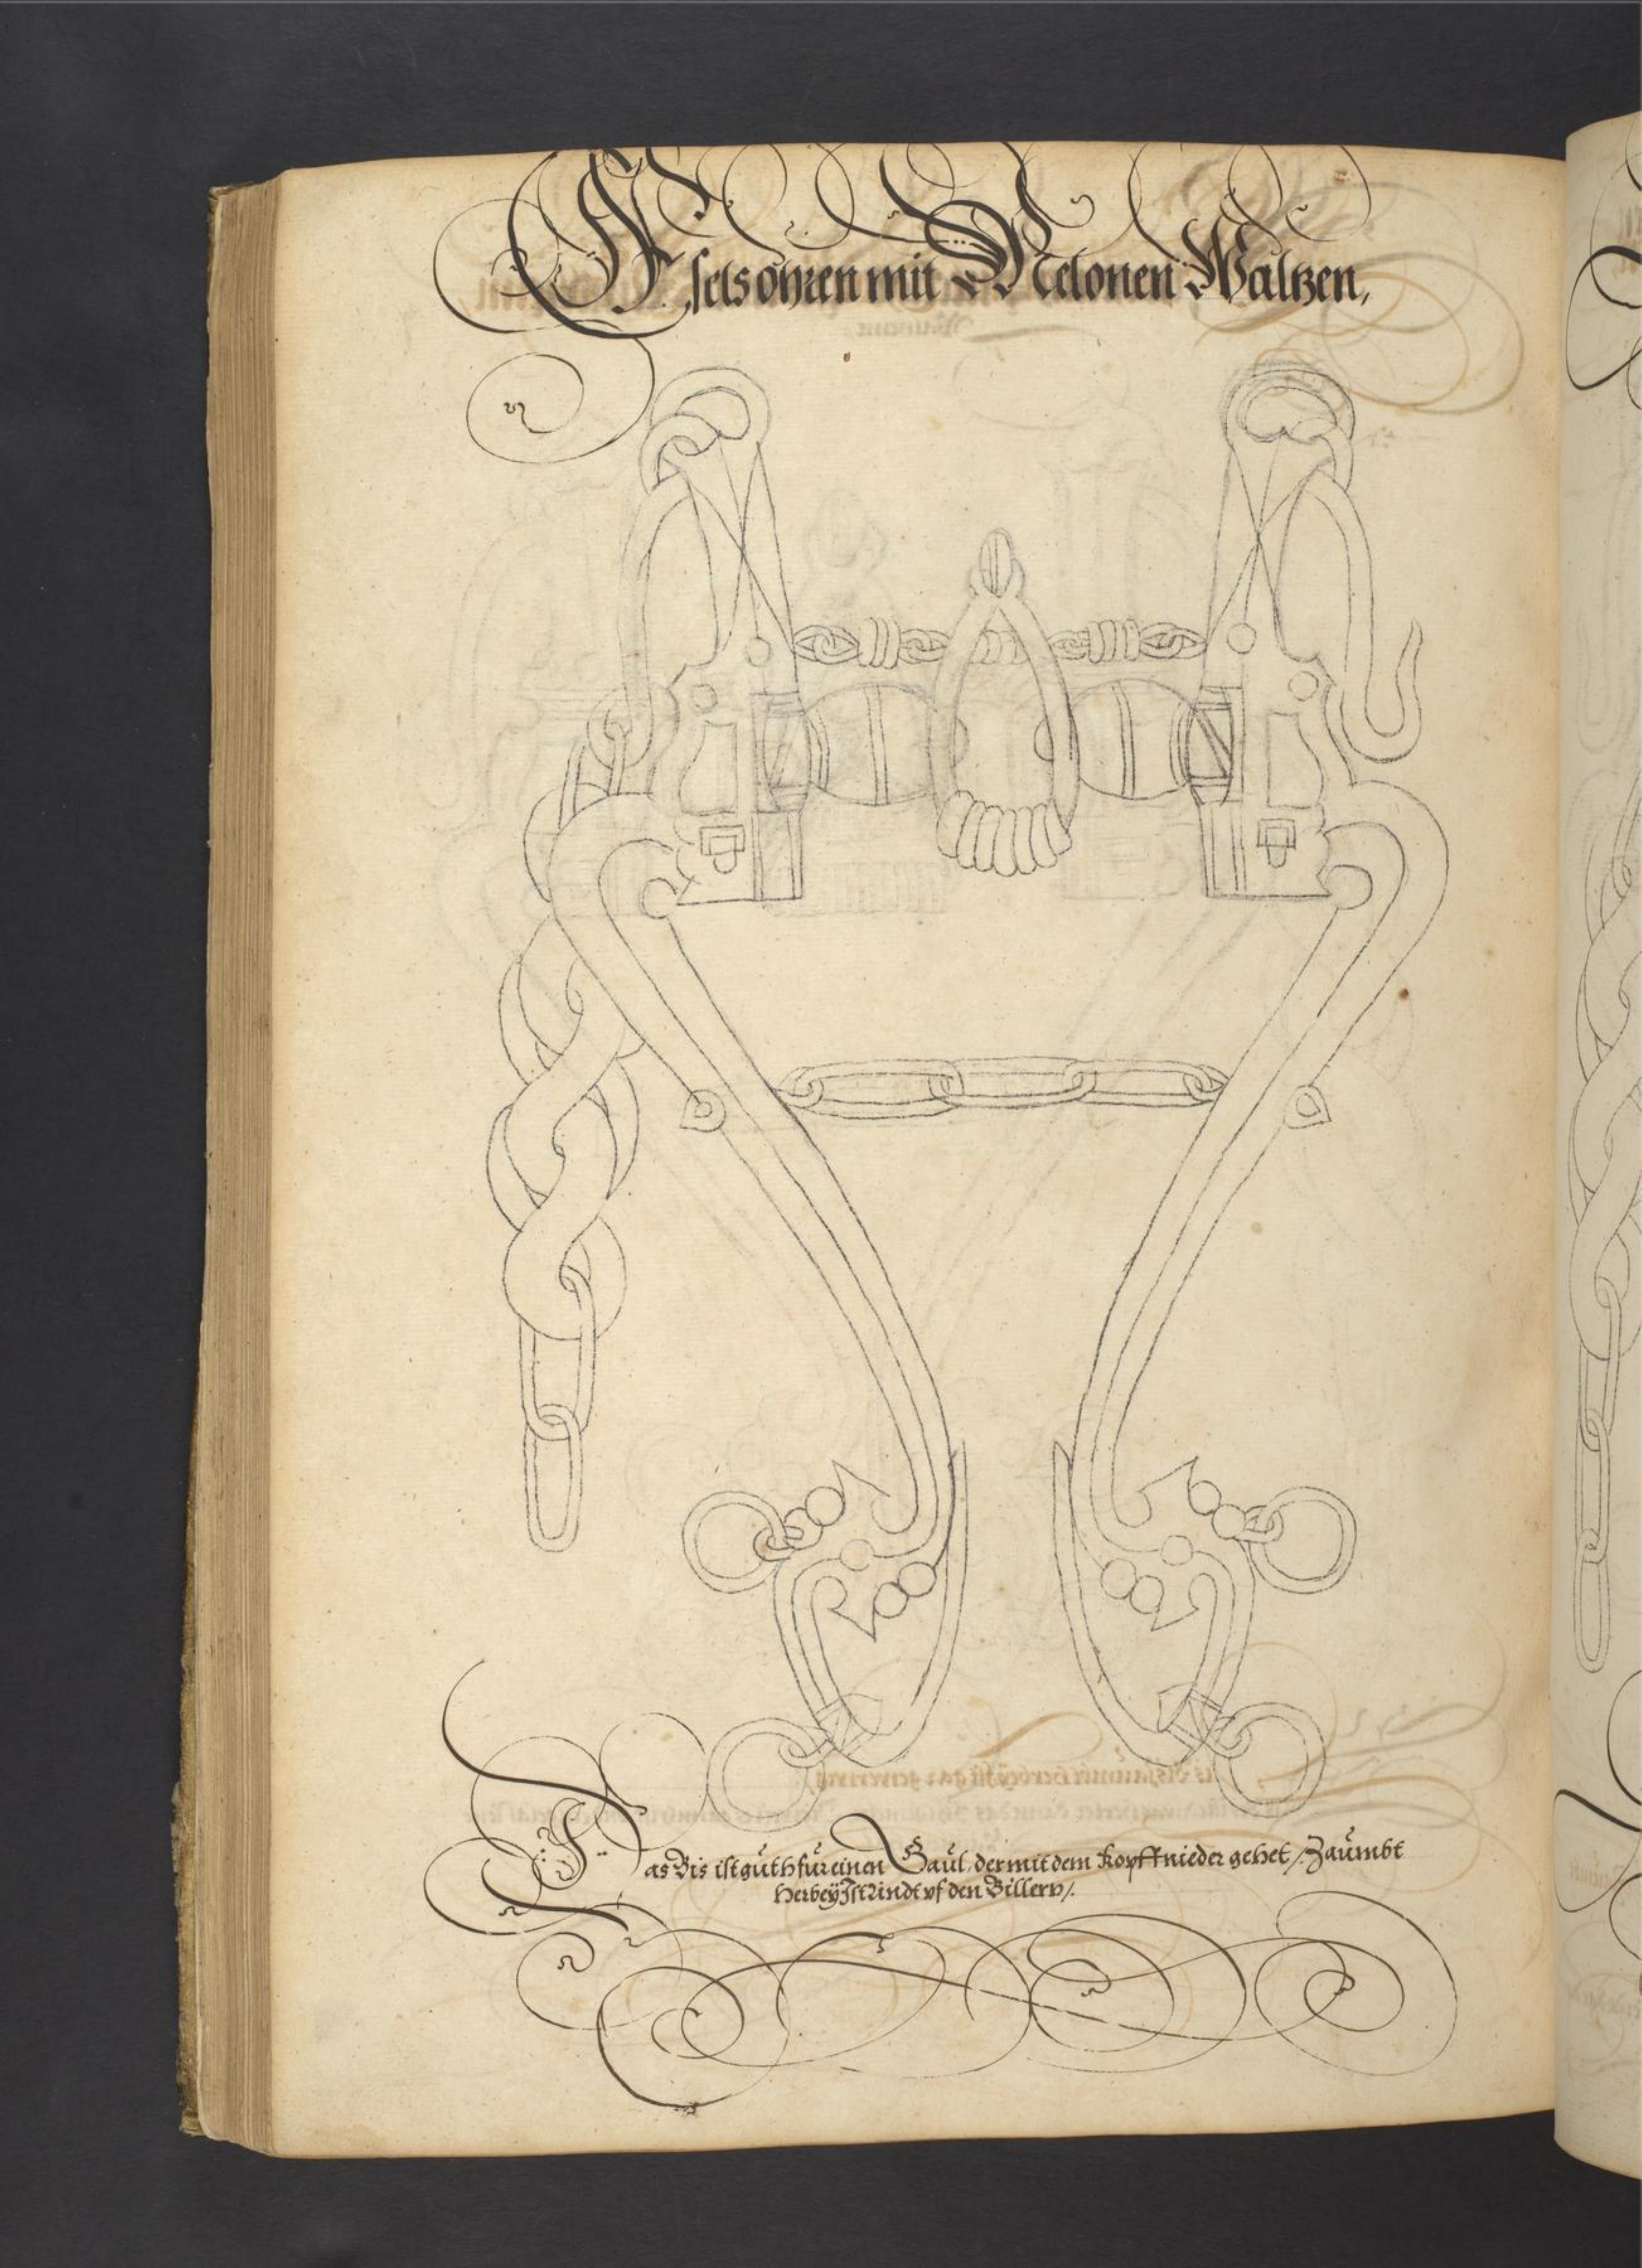 Eselsohren mit Melonen Waltzen,
Das Bis ist guth fur einen Gaul, der mit dem kopff nieder gehet / Zaumbt
Herbey Ist lindt vf den Billern /.